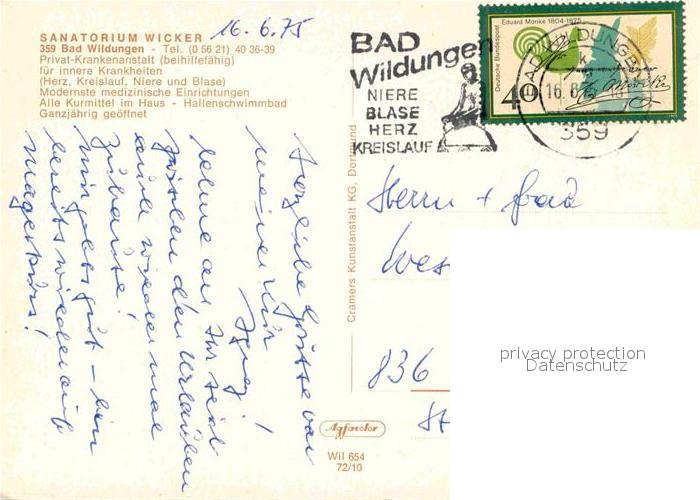 16.6.75
SANATORIUM WICKER
359 Bad Wildungen - Tel. (0 56 21) 40 36-39
Privat-Krankenanstalt (beihilfefähig)
für innere Krankheiten
(Herz, Kreislauf, Niere und Blase)
Modernste medizinische Einrichtungen
Alle Kurmittel im Haus - Hallenschwimmbad
Ganzjährig geöffnet
Herzliche Grüsse von
meiner Kur
Ihr seid
zwischen den Urlauben
auch wieder mal
zuhause!
Mir gehts gut – bin
bereits wieder auf
Cramers Kunstanstalt KG, Dortmund
BAD
Wildungen
NIERE
BLASE
HERZ
KREISLAUF
Eduard Mörike 1804-1875
Deutsche Bundespost
40
BAD WILDUNGEN
16.6.75
359
Herrn + Frau
Wes
836
St
Agfacolor
Wil 654
72/10
privacy protection
Datenschutz